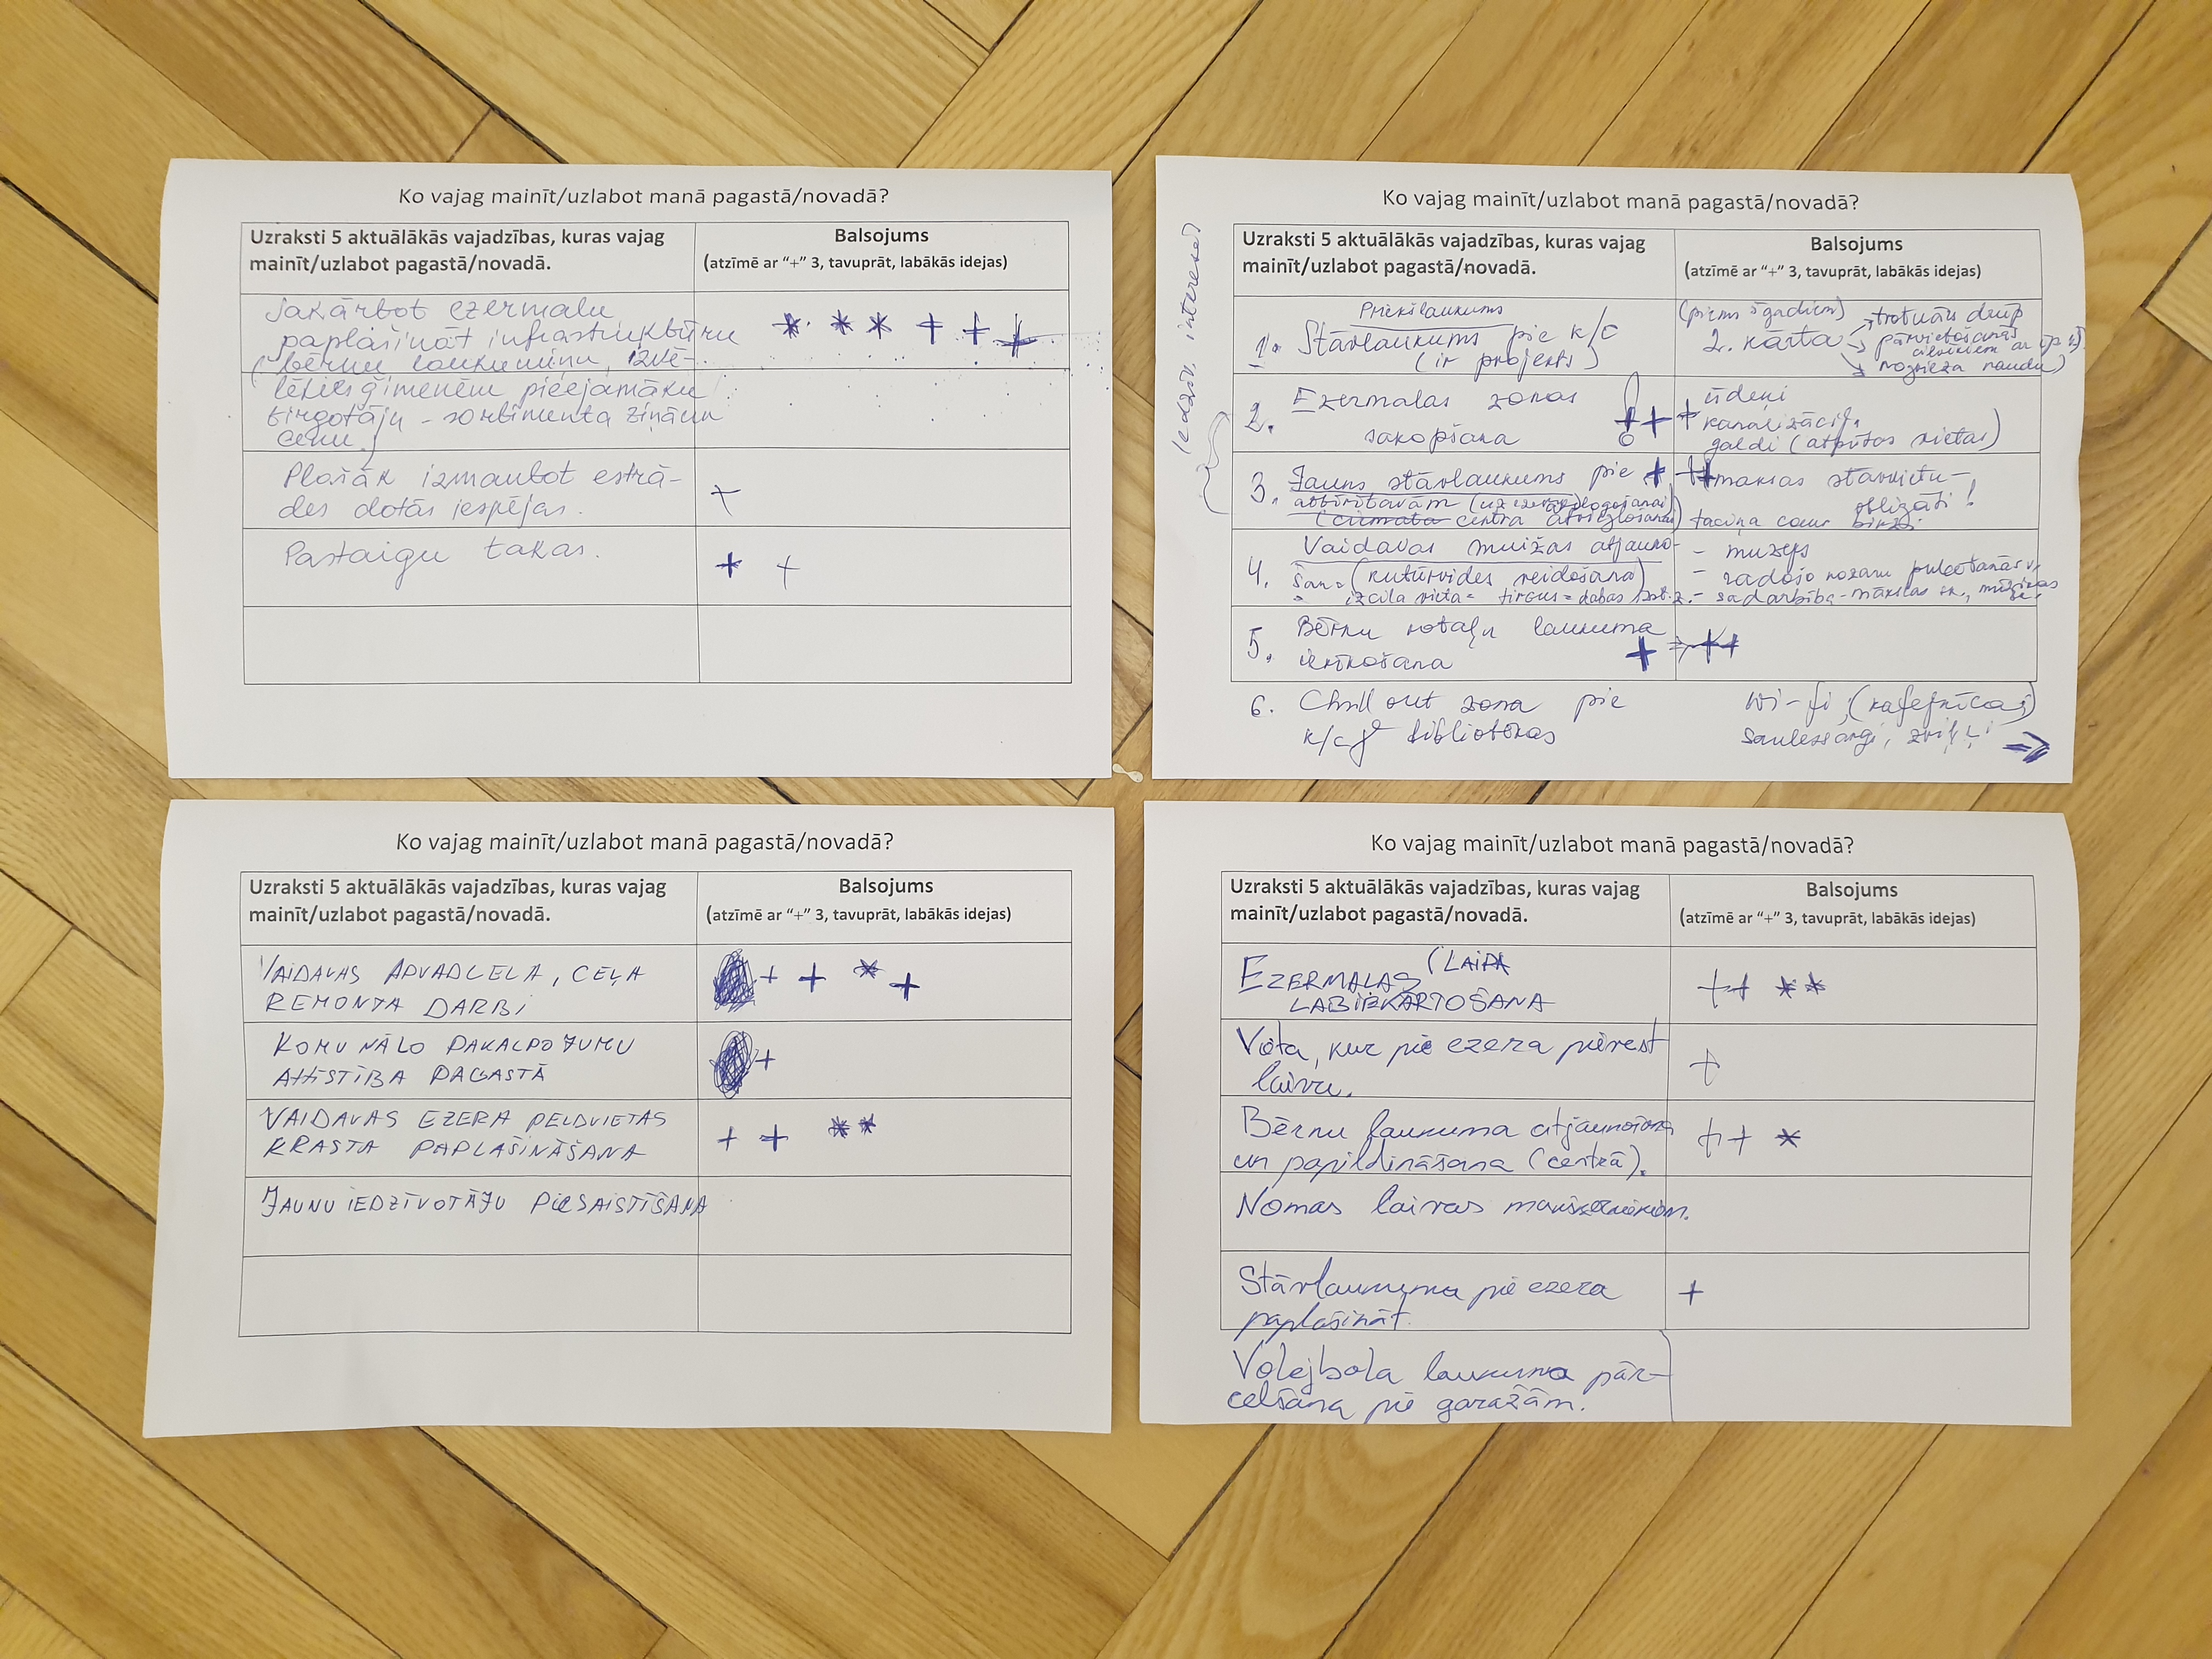 Ko vajag mainīt/uzlabot manā pagastā/novadā?
Uzraksti 5 aktuālākās vajadzības, kuras vajag
mainīt/uzlabot pagastā/novadā.
Balsojums
(atzīmē ar “+” 3, tavuprāt, labākās idejas)
Sakārtot ezermalu,
paplašināt infrastruktūru
(bērnu laukumiņu, izvē-
ģimenēm pieejamāku
tirgotāju - sortimenta ziņā un
cenu.)
* * * + + +
Plašāk izmantot estrā-
des dotās iespējas.
+
Pastaigu takas.
+ +
Ko vajag mainīt/uzlabot manā pagastā/novadā?
Uzraksti 5 aktuālākās vajadzības, kuras vajag
mainīt/uzlabot pagastā/novadā.
Balsojums
(atzīmē ar “+” 3, tavuprāt, labākās idejas)
Iedzīv. intereses
Priekšlaukums
1. Stāvlaukums pie k/c
(ir projekts)
(pirms 5 gadiem)
2. kārta → trotuārs drūp
→ pārvietošanās
cilvēkiem ar
→ nogrieza naudu)
2. Ezermalas zonas
sakopšana
+ + +
ūdeņi
kanalizācija
galdi (atpūtas vietas)
3. Jauns stāvlaukums pie
atkritavām
centra atvieglošanai)
+ ++
maksas stāvvietu -
obligāti!
taciņa caur birzi
4. Vaidavas muižas atjauno-
šana = (kultūrvides veidošana)
izcila vieta = tirgus = dabas
- muzejs
- radošo nozaru pulcēšanās v.
- sadarbība - mākslas sk., mūzikas
5. Bērnu rotaļu laukuma
ierīkošana
+ ++
6. Chill out zona pie
k/c bibliotēkas
Wi-fi, (kafejnīcas)
saulessargi,
→
Ko vajag mainīt/uzlabot manā pagastā/novadā?
Uzraksti 5 aktuālākās vajadzības, kuras vajag
mainīt/uzlabot pagastā/novadā.
Balsojums
(atzīmē ar “+” 3, tavuprāt, labākās idejas)
VAIDAVAS APVADCEĻA, CEĻA
REMONTA DARBI
+ + * +
KOMUNĀLO PAKALPOJUMU
ATTĪSTĪBA PAGASTĀ
+
VAIDAVAS EZERA PELDVIETAS
KRASTA PAPLAŠINĀŠANA
+ + * *
JAUNU IEDZĪVOTĀJU PIESAISTĪŠANA
Ko vajag mainīt/uzlabot manā pagastā/novadā?
Uzraksti 5 aktuālākās vajadzības, kuras vajag
mainīt/uzlabot pagastā/novadā.
Balsojums
(atzīmē ar “+” 3, tavuprāt, labākās idejas)
EZERMALAS (LAIPA
LABIEKĀRTOŠANA
++ * *
Vieta, kur pie ezera piesiet
laivu.
+
Bērnu laukuma atjaunošana
un papildināšana (centrā).
++ *
Nomas laivas makšķerniekiem.
Stāvlaukuma pie ezera
paplašināt.
+
Volejbola laukuma pār-
celšana pie garāžām.